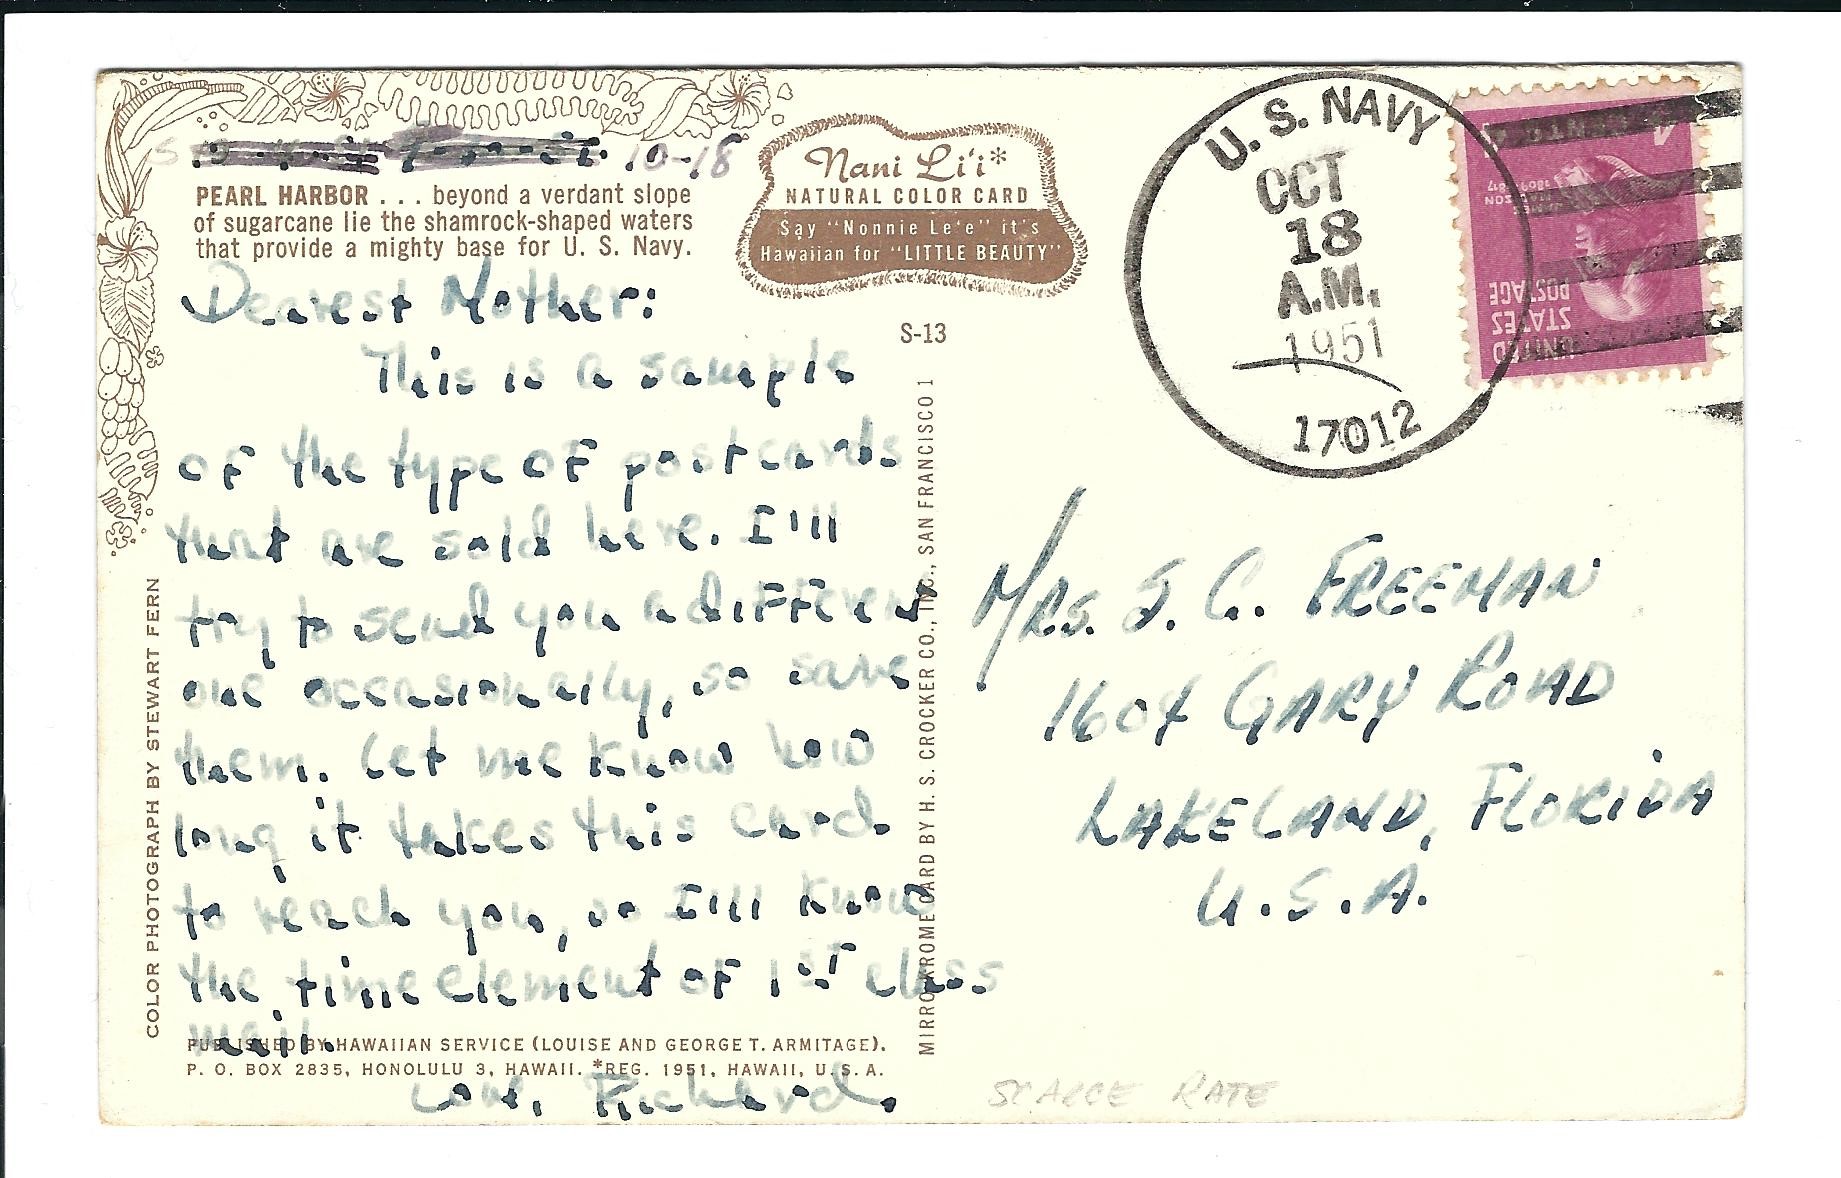 10-18
PEARL HARBOR . . . beyond a verdant slope
of sugarcane lie the shamrock-shaped waters
that provide a mighty base for U. S. Navy.
Nani Li'i*
NATURAL COLOR CARD
Say "Nonnie Le'e" it's
Hawaiian for "LITTLE BEAUTY"
S-13
Dearest Mother:
This is a sample
of the type of postcards
that are sold here. I'll
try to send you a different
one occasionally, so save
them. Let me know how
long it takes this card
to reach you, so I'll know
the time element of 1st class
mail.
Love, Richard.
PUBLISHED BY HAWAIIAN SERVICE (LOUISE AND GEORGE T. ARMITAGE).
P. O. BOX 2835, HONOLULU 3, HAWAII. *REG. 1951, HAWAII, U. S. A.
COLOR PHOTOGRAPH BY STEWART FERN
MIRRO-KROME CARD BY H. S. CROCKER CO., INC., SAN FRANCISCO 1
U. S. NAVY
OCT
18
A.M.
1951
17012
UNITED
STATES
POSTAGE
JAMES
MADISON
1809 1817
4 CENTS 4
MRS. J. C. FREEMAN
1604 GARY ROAD
LAKELAND, FLORIDA
U.S.A.
SCARCE RATE